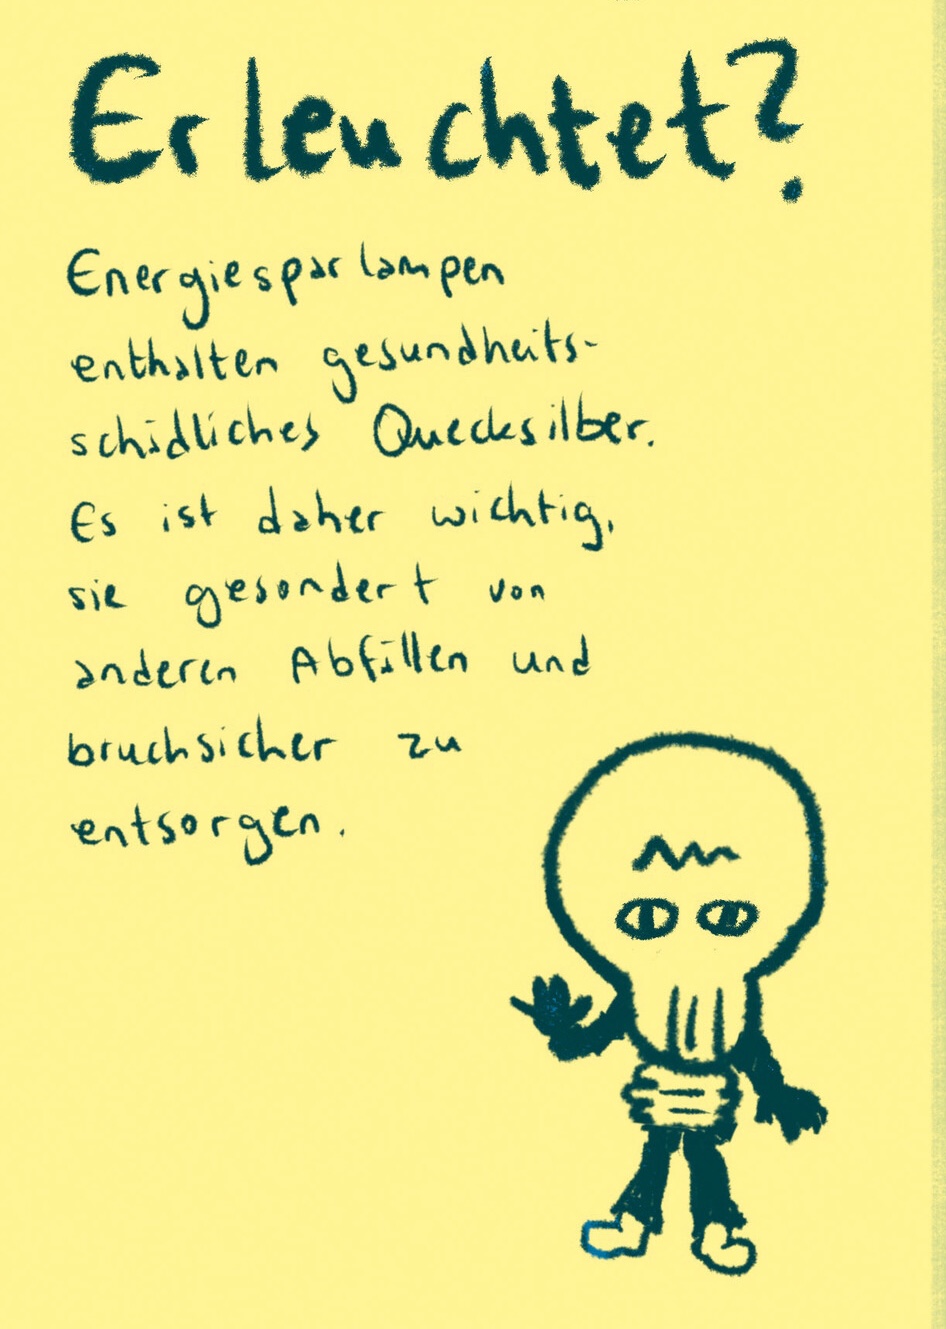 Erleuchtet?
Energiesparlampen
enthalten gesundheits-
schädliches Quecksilber.
Es ist daher wichtig,
sie gesondert von
anderen Abfällen und
bruchsicher zu
entsorgen.